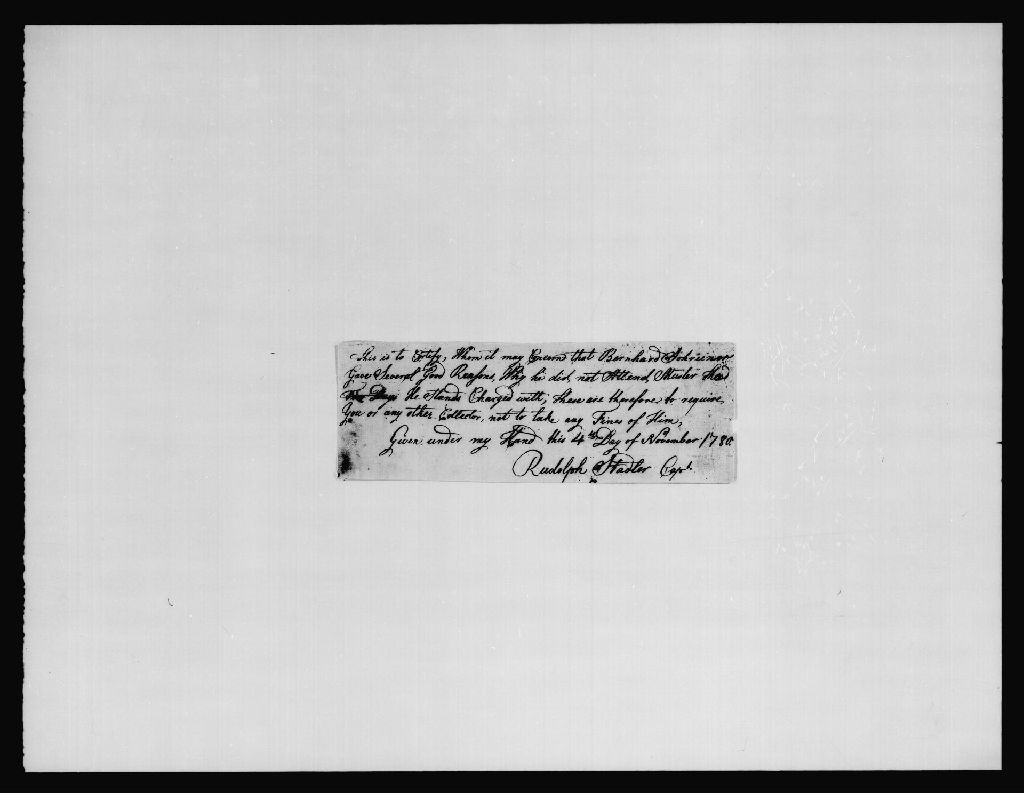 This is to Certify, Whom it may Concern that Barnhard
Gave Several Good Reasons, Why he did not Attend Muster
Days He Stands Charged with, these are therefore to require
You or any other Collector, not to take any Fines of Him,
Given under my Hand this 4th Day of November 1780
Rudolph Stadler Capt.